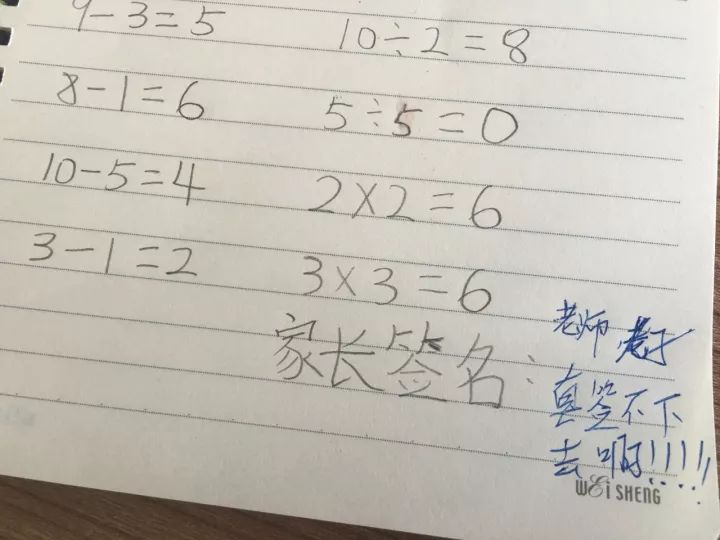 9-3=5
10÷2=8
8-1=6
5÷5=0
10-5=4
2×2=6
3-1=2
3×3=6
家长签名:
老师 老子
真签不下
去啊!!!!!
WEiSHENG